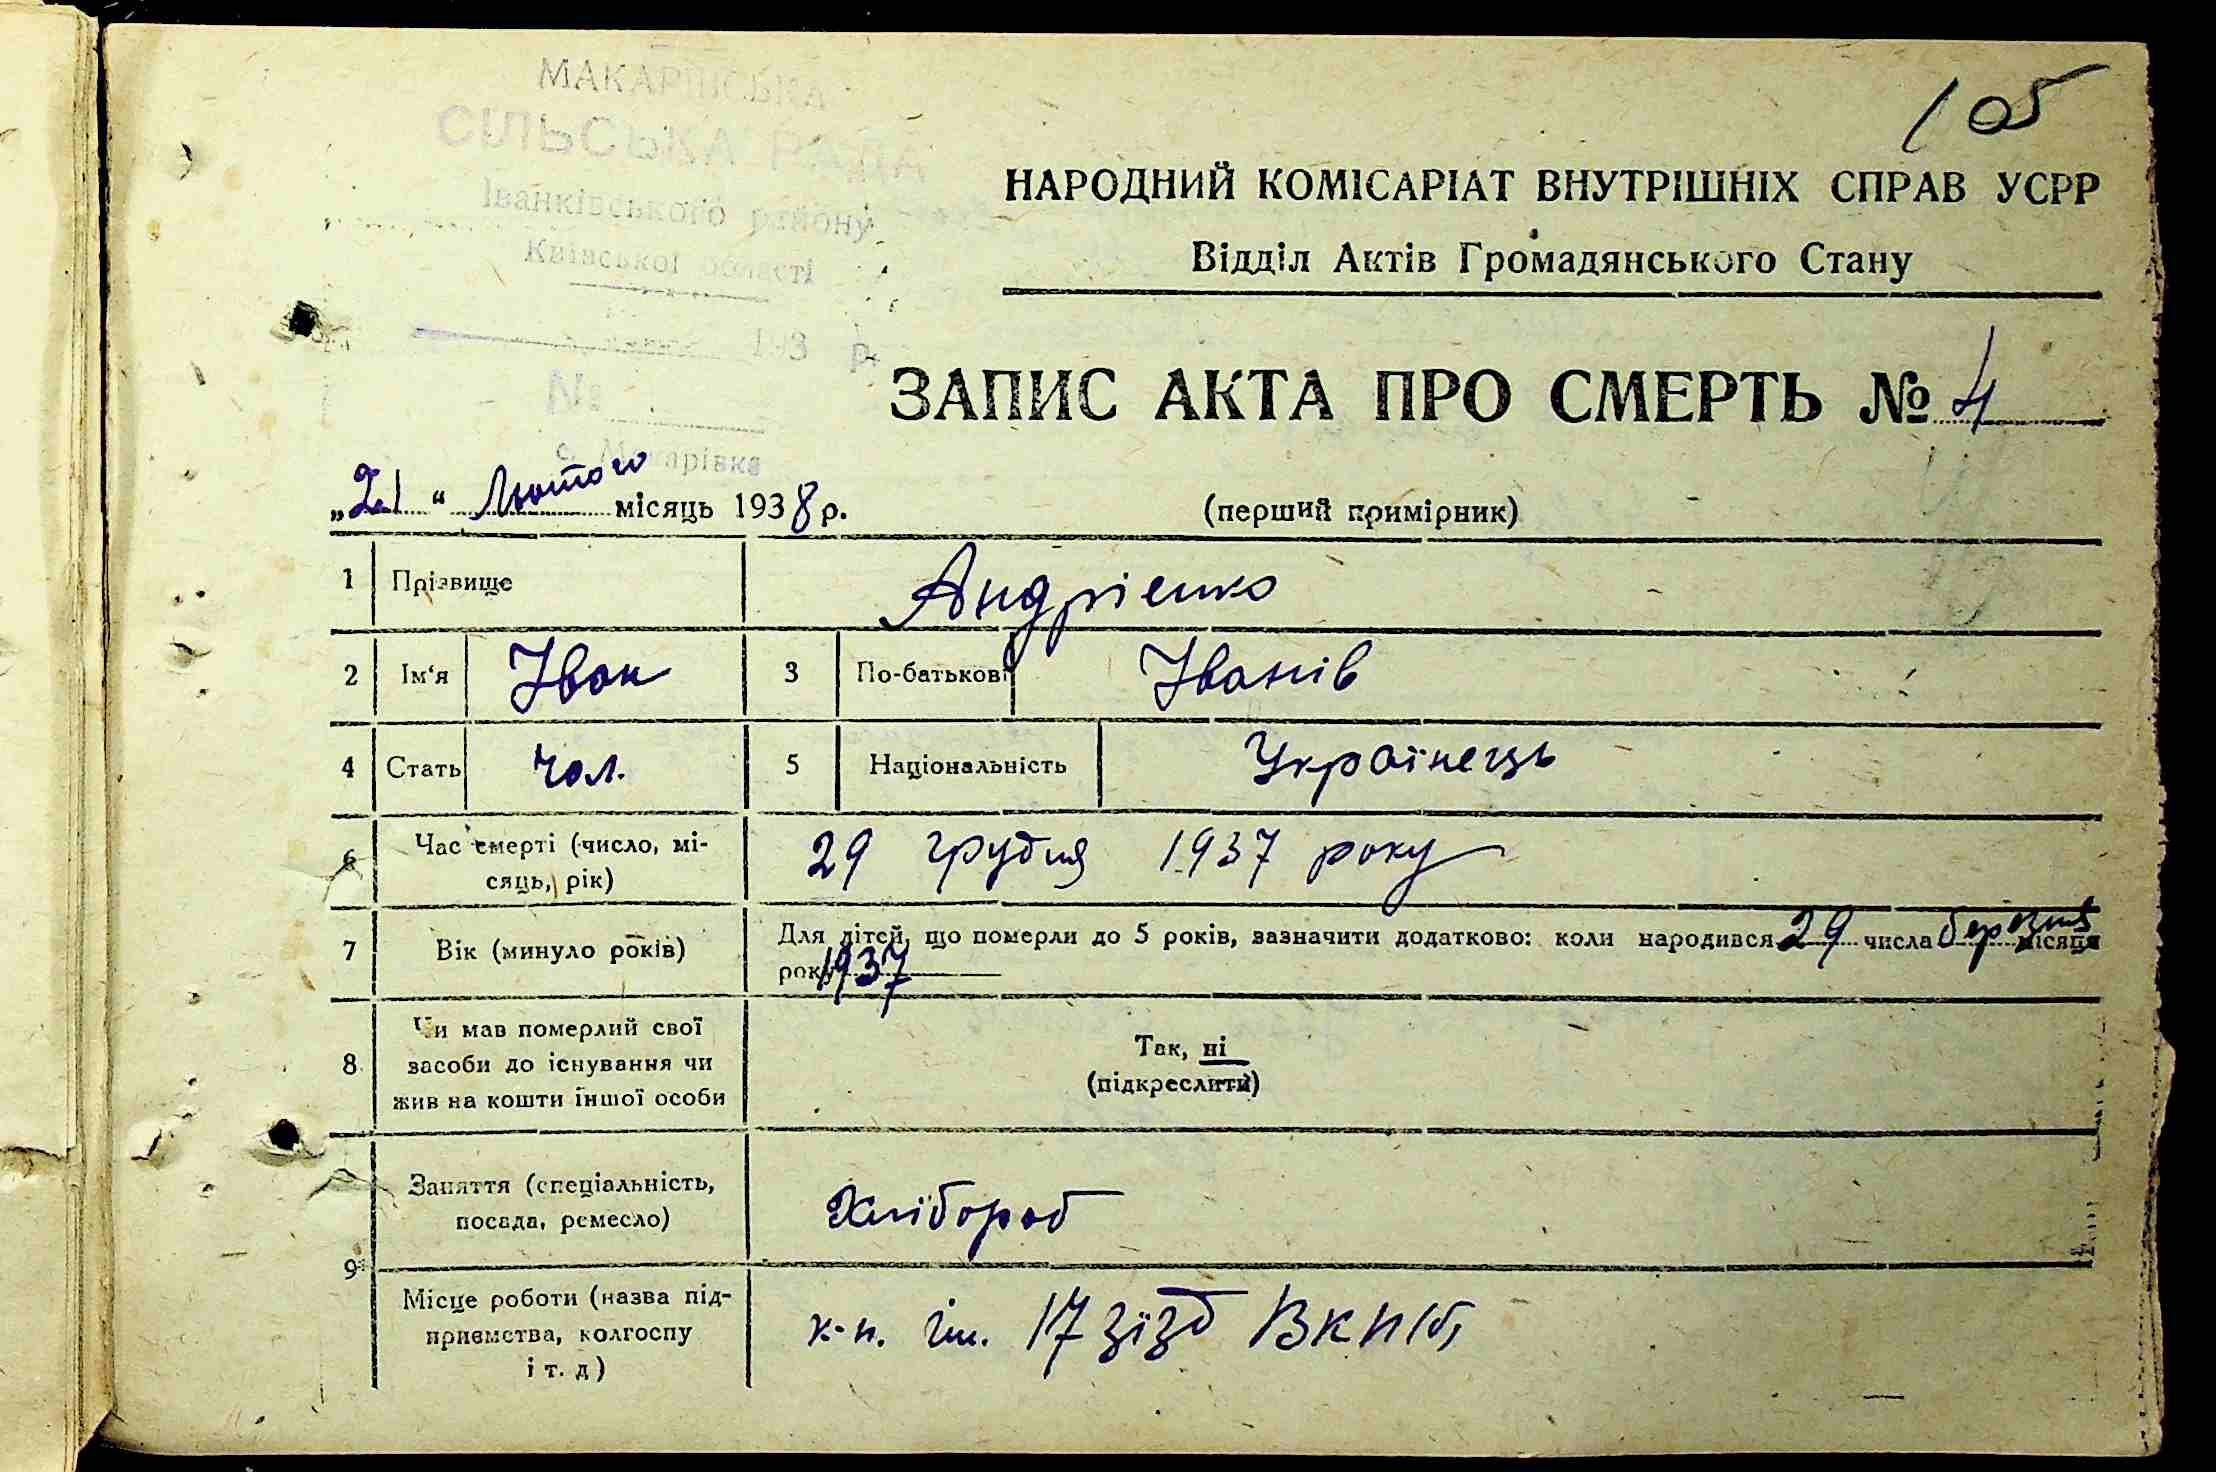 МАКАРІВСЬКА
СІЛЬСЬКА РАДА
Іванківського району
Київської області
193 р.
№
с. Макарівка
105
НАРОДНИЙ КОМІСАРІАТ ВНУТРІШНІХ СПРАВ УСРР
Відділ Актів Громадянського Стану
ЗАПИС АКТА ПРО СМЕРТЬ № 4
„21“ Лютого місяць 1938 р.
(перший примірник)
1 Прізвище Андрієнко
2 Ім‘я Іван 3 По-батькові Іванів
4 Стать чол. 5 Національність Українець
6 Час смерті (число, мі-
сяць, рік)
29 грудня 1937 року
7 Вік (минуло років)
Для дітей, що померли до 5 років, зазначити додатково: коли народився 29 числа березня місяця
року 1937
8 Чи мав померлий свої
засоби до існування чи
жив на кошти іншої особи
Так, ні
(підкреслити)
9 Заняття (спеціальність,
посада, ремесло)
Хлібороб
Місце роботи (назва під-
приємства, колгоспу
і т. д)
к-п. ім. 17 зїзд ВКП(б)